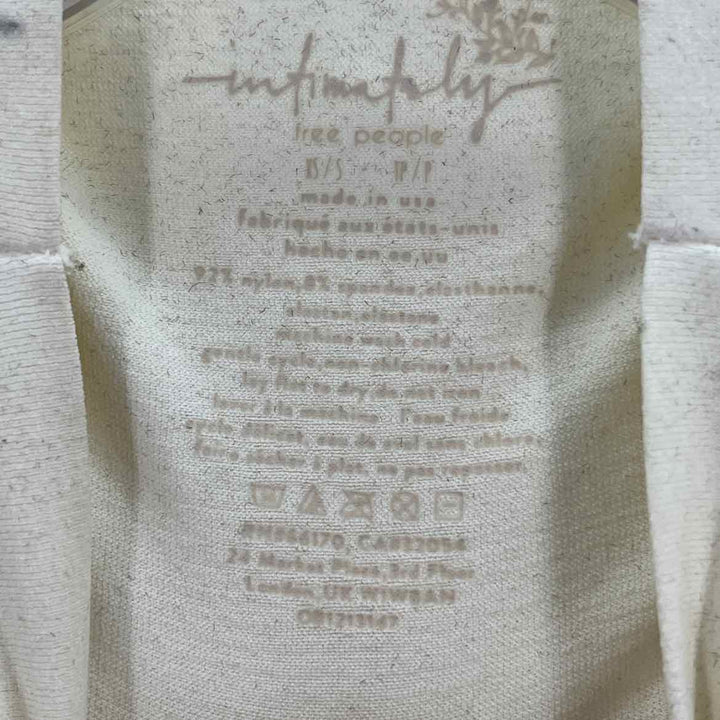 intimately
free people
XS/S TP/P
made in usa
fabriqué aux états-unis
hecho en ee,uu
92% nylon,8% spandex,elasthanne,
elastan,elastano
machine wash cold
gentle cycle,non-chlorine bleach,
lay flat to dry,do not iron
laver à la machine l'eau froide
cycle délicat, eau de javel sans chlore
faire sécher à plat, ne pas repasser.
CA
24 Market Place,3rd Floor
London, UK W1W8AN